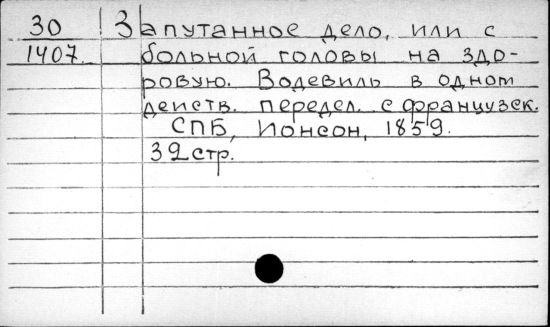 30 Запутанное дело, или с
1407. больной головы на здо-
ровую. Водевиль в одном
действ. передел. с французск.
СПБ, Ионсон, 1859.
32 стр.